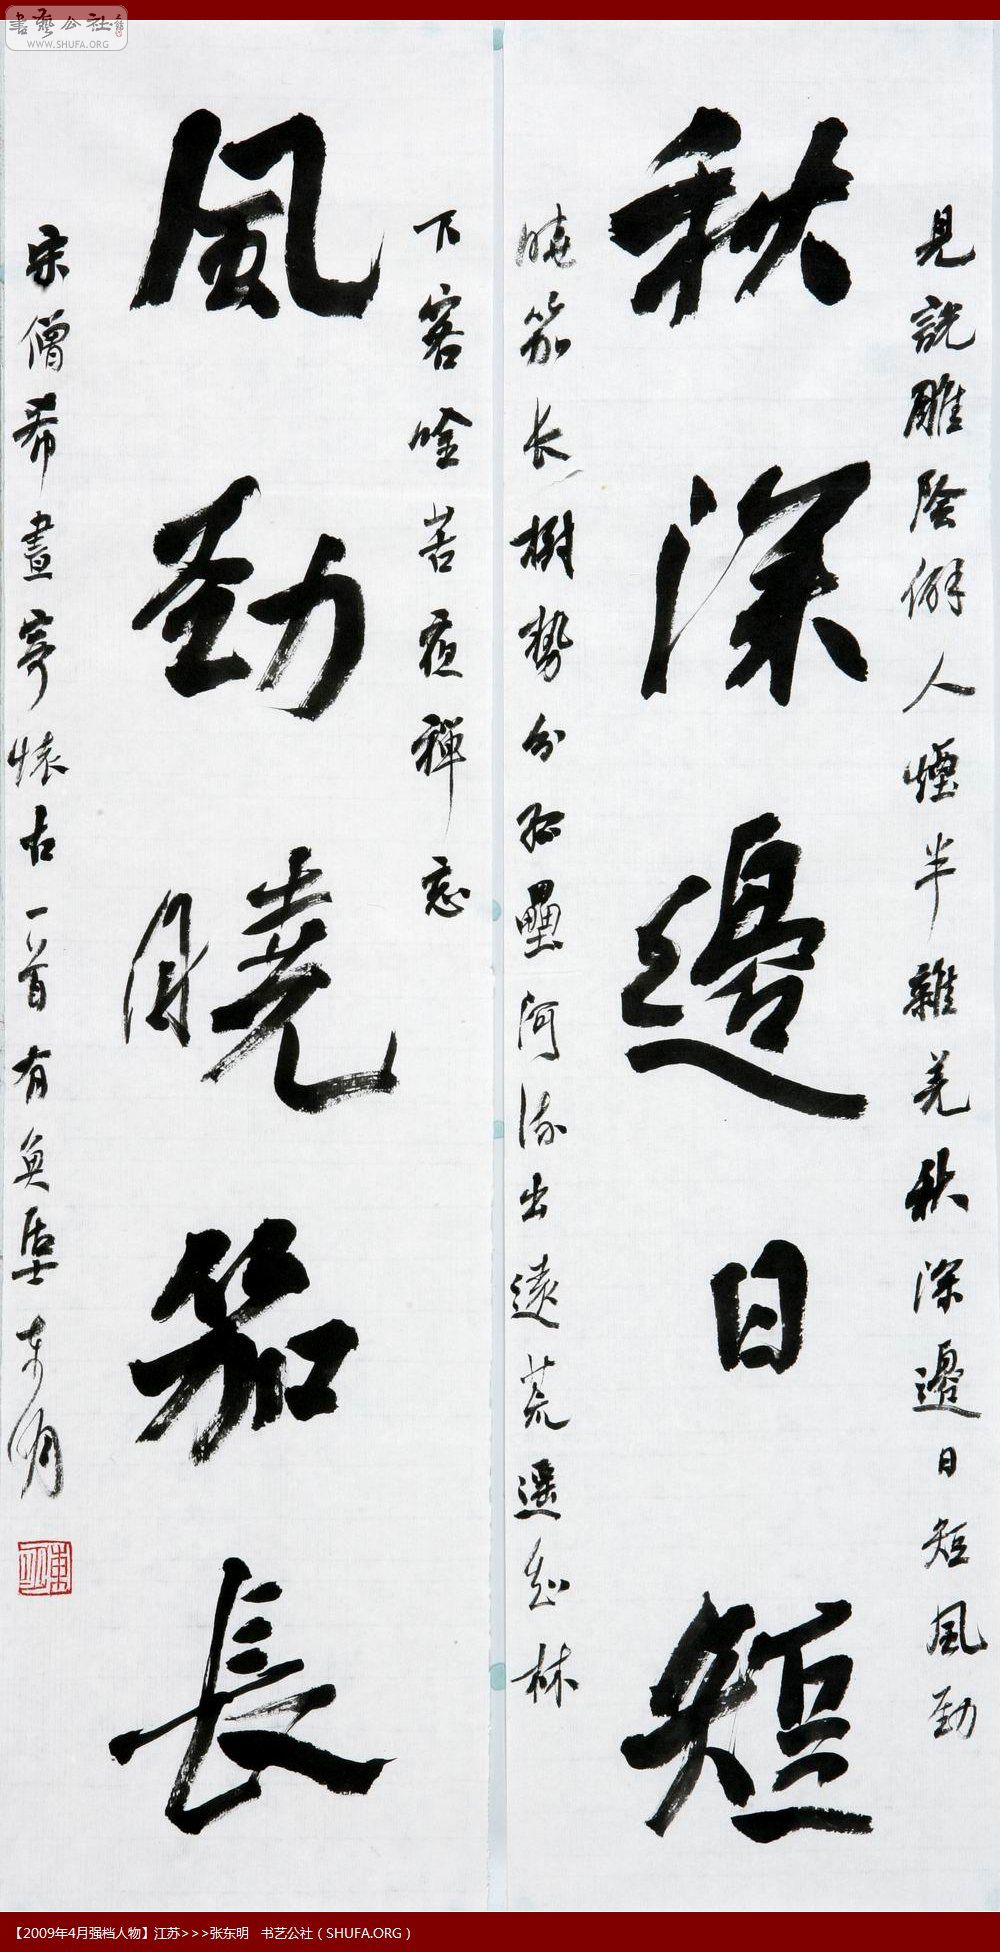 書藝公社
WWW.SHUFA.ORG
見說雕陰僻人煙半雜羌秋深邊日短風勁
秋深邊日短
曉笳长樹勢分孤壘河流出遠荒遥知林
下客吟苦夜禪忘
風勁曉笳長
宋僧希晝寄懷古一首有奂居士东明
東明
【2009年4月强档人物】江苏>>>张东明 书艺公社（SHUFA.ORG）